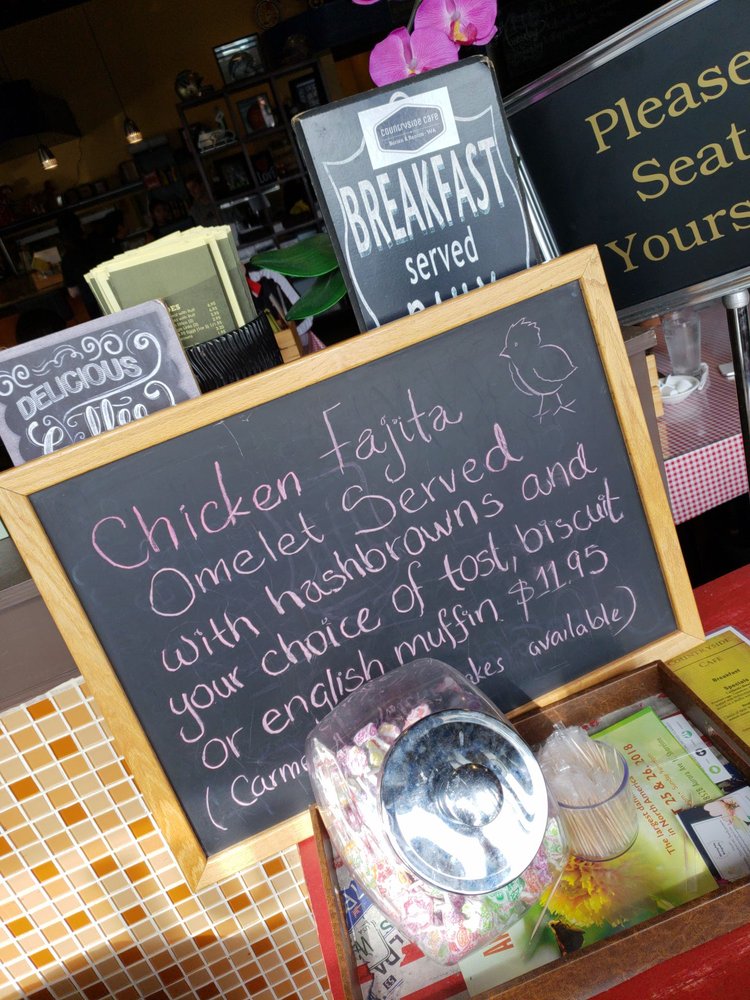 Please
Seat
Yours
countryside cafe
BREAKFAST
served
DELICIOUS
Coffee
Chicken Fajita
Omelet Served
with hashbrowns and
your choice of tost, biscuit
or english muffin. $11.95
(Carme
akes available)
COUNTRYSIDE
CAFE
Breakfast
Specials
25 & 26, 2018
The largest
in North America.